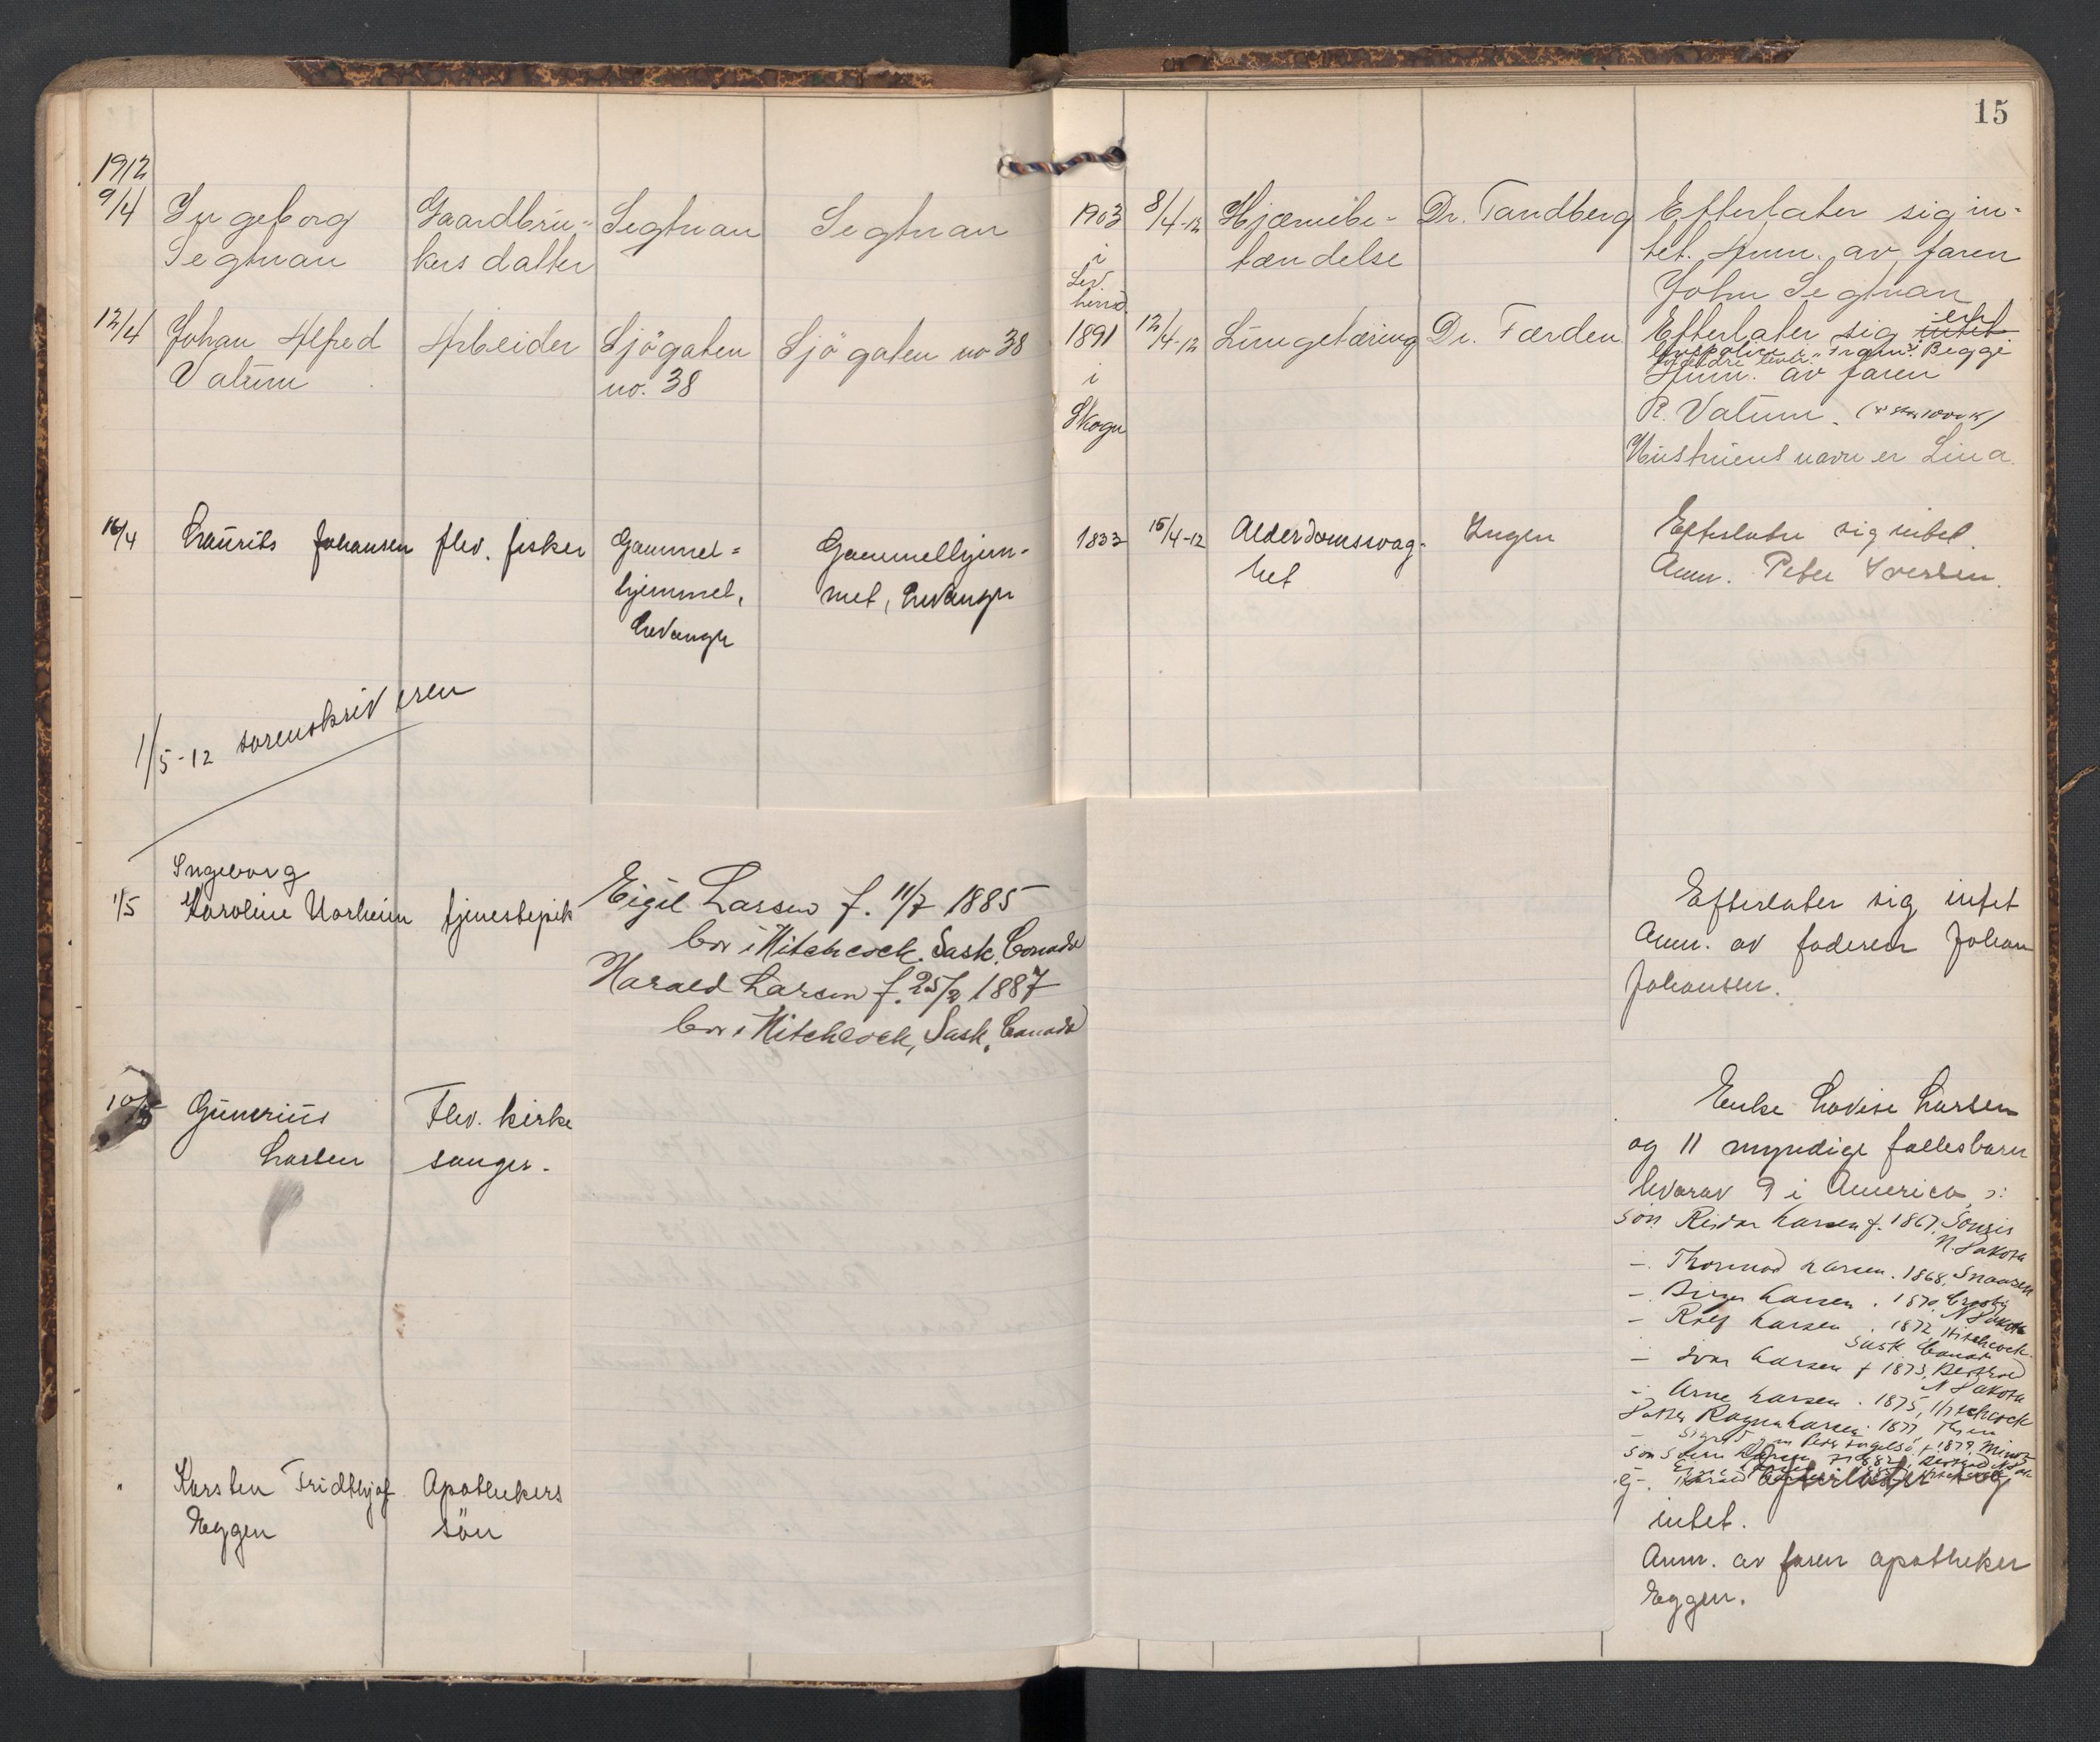 15
1912
9/4 Ingeborg Gaardbru- Segtnan Segtnan 1903 8/4-12 Hjærnebe- Dr. Tandberg Efterlater sig in-
Segtnan kers datter i tændelse tet. Anm. av faren
Lev. John Segtnan
herred
12/4 Johan Alfred Arbeider Sjögaten Sjögaten no 38 1891 12/4-12 Lungetæring Dr. Færden Efterlater sig intet
Begge
Vatum no. 38 i Anm. av faren
Skogn R. Vatum.
Hustruens navn er Lina.
16/4 Laurits Johansen flv. fisker Gammel= Gammelhjem- 1833 15/4-12 Alderdomssvag- Ingen Efterlater sig intet.
hjemmet, met, Levanger het Anm. Peter Iversen.
Levanger
1/5-12 sorenskriveren
Ingeborg
1/5 Karoline Norheim tjenestepik Efterlater sig intet
Anm. av faderen Johan
Johansen.
Eigil Larsen f. 11/7 1885
bor i Hitchcock. Sask. Canada
Harald Larsen f. 25/2 1887
bor i Hitchcock, Sask. Canada
10/5 Gunerius Flv. kirke Enke Lovise Larsen
Larsen sanger. og 11 myndige fællesbarn
hvorav 9 i America ɔ:
sön Reidar Larsen f. 1867, Souris
N. Dakota
-. Thormod Larsen. 1868, Snaasen
-. Birger Larsen. 1870 Crosby
N Dakota
- Rolf Larsen. 1872, Hitchcock.
Sask Canada
- Ivar Larsen f 1873,
N Dakota
- Arne Larsen. 1875, Hitchcock
Datter Ragna Larsen 1877,
1879, Minot
" Karsten Fridthjof Apothekers Efterlater sig
Eggen sön intet.
Anm. av faren apotheker
Eggen.